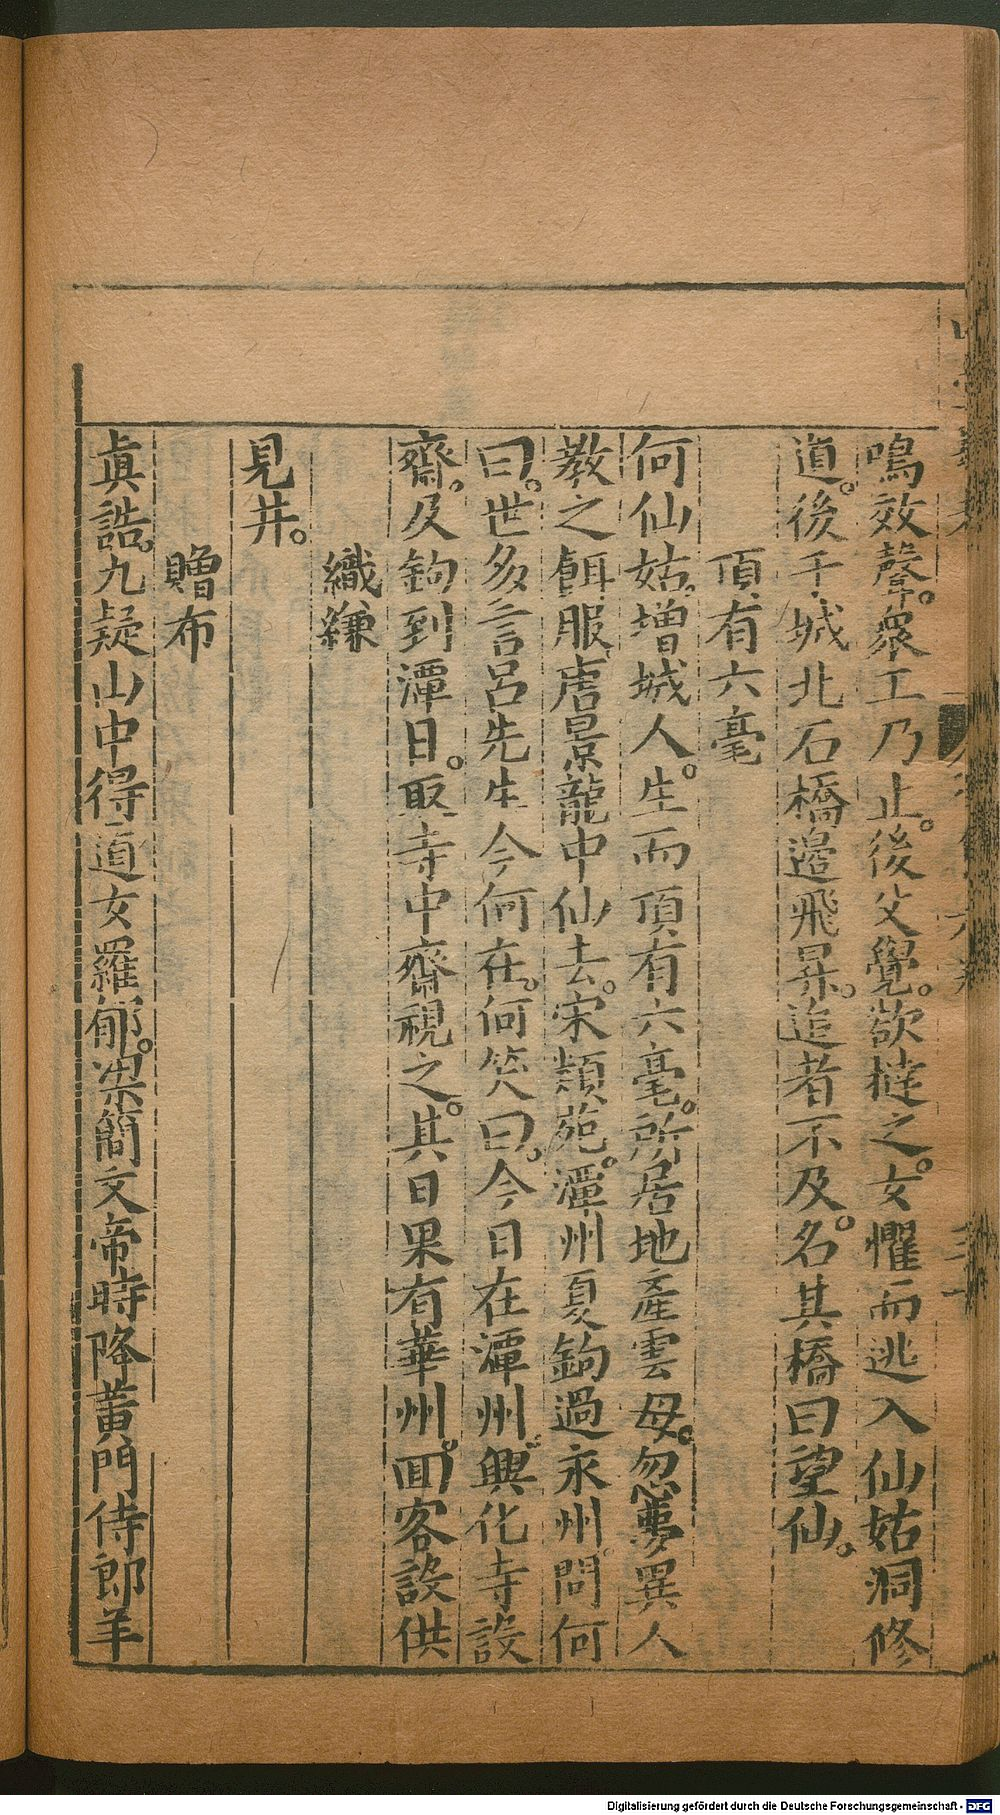 鳴效聲。衆工乃止。後父覺。欲撻之。女懼而逃入仙姑洞修
道。後于城北石橋邉飛昇。追者不及。名其橋曰望仙。
頂有六毫
何仙姑。增城人。生而頂有六毫。所居地產雲母。忽夢異人
教之餌服。唐景龍中仙去。宋類苑。潭州夏鈞過永州。問何
曰。世多言呂先生今何在。何笑曰。今日在潭州。興化寺設
齋。及鈞到潭日。取寺中齋視之。其日果有華州。回客設供
織縑
見井。
贈布
眞誥。九疑山中得道女羅郁。梁簡文帝時降黃門侍郎羊
Digitalisierung gefördert durch die Deutsche Forschungsgemeinschaft - DFG